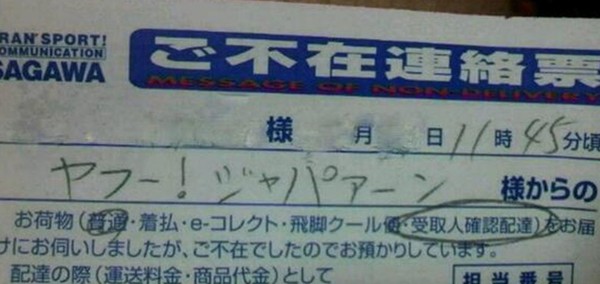 TRAN'SPORT!
COMMUNICATION
SAGAWA
ご不在連絡票
MESSAGE OF NON-DELIVERY
様 月 日 11時45分頃
ヤフー!ジャパァーン 様からの
お荷物(普通・着払・e-コレクト・飛脚クール便・受取人確認配達)をお届
けにお伺いしましたが、ご不在でしたのでお預かりしています。
配達の際(運送料金・商品代金)として
担当番号